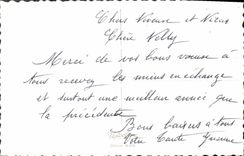 Chère Nelly
Merci de vos bons voeux à
tous recevez les miens en echange
et surtout une meilleur année que
la précédente
Bons baisers à tous
Votre Tante Yvonne